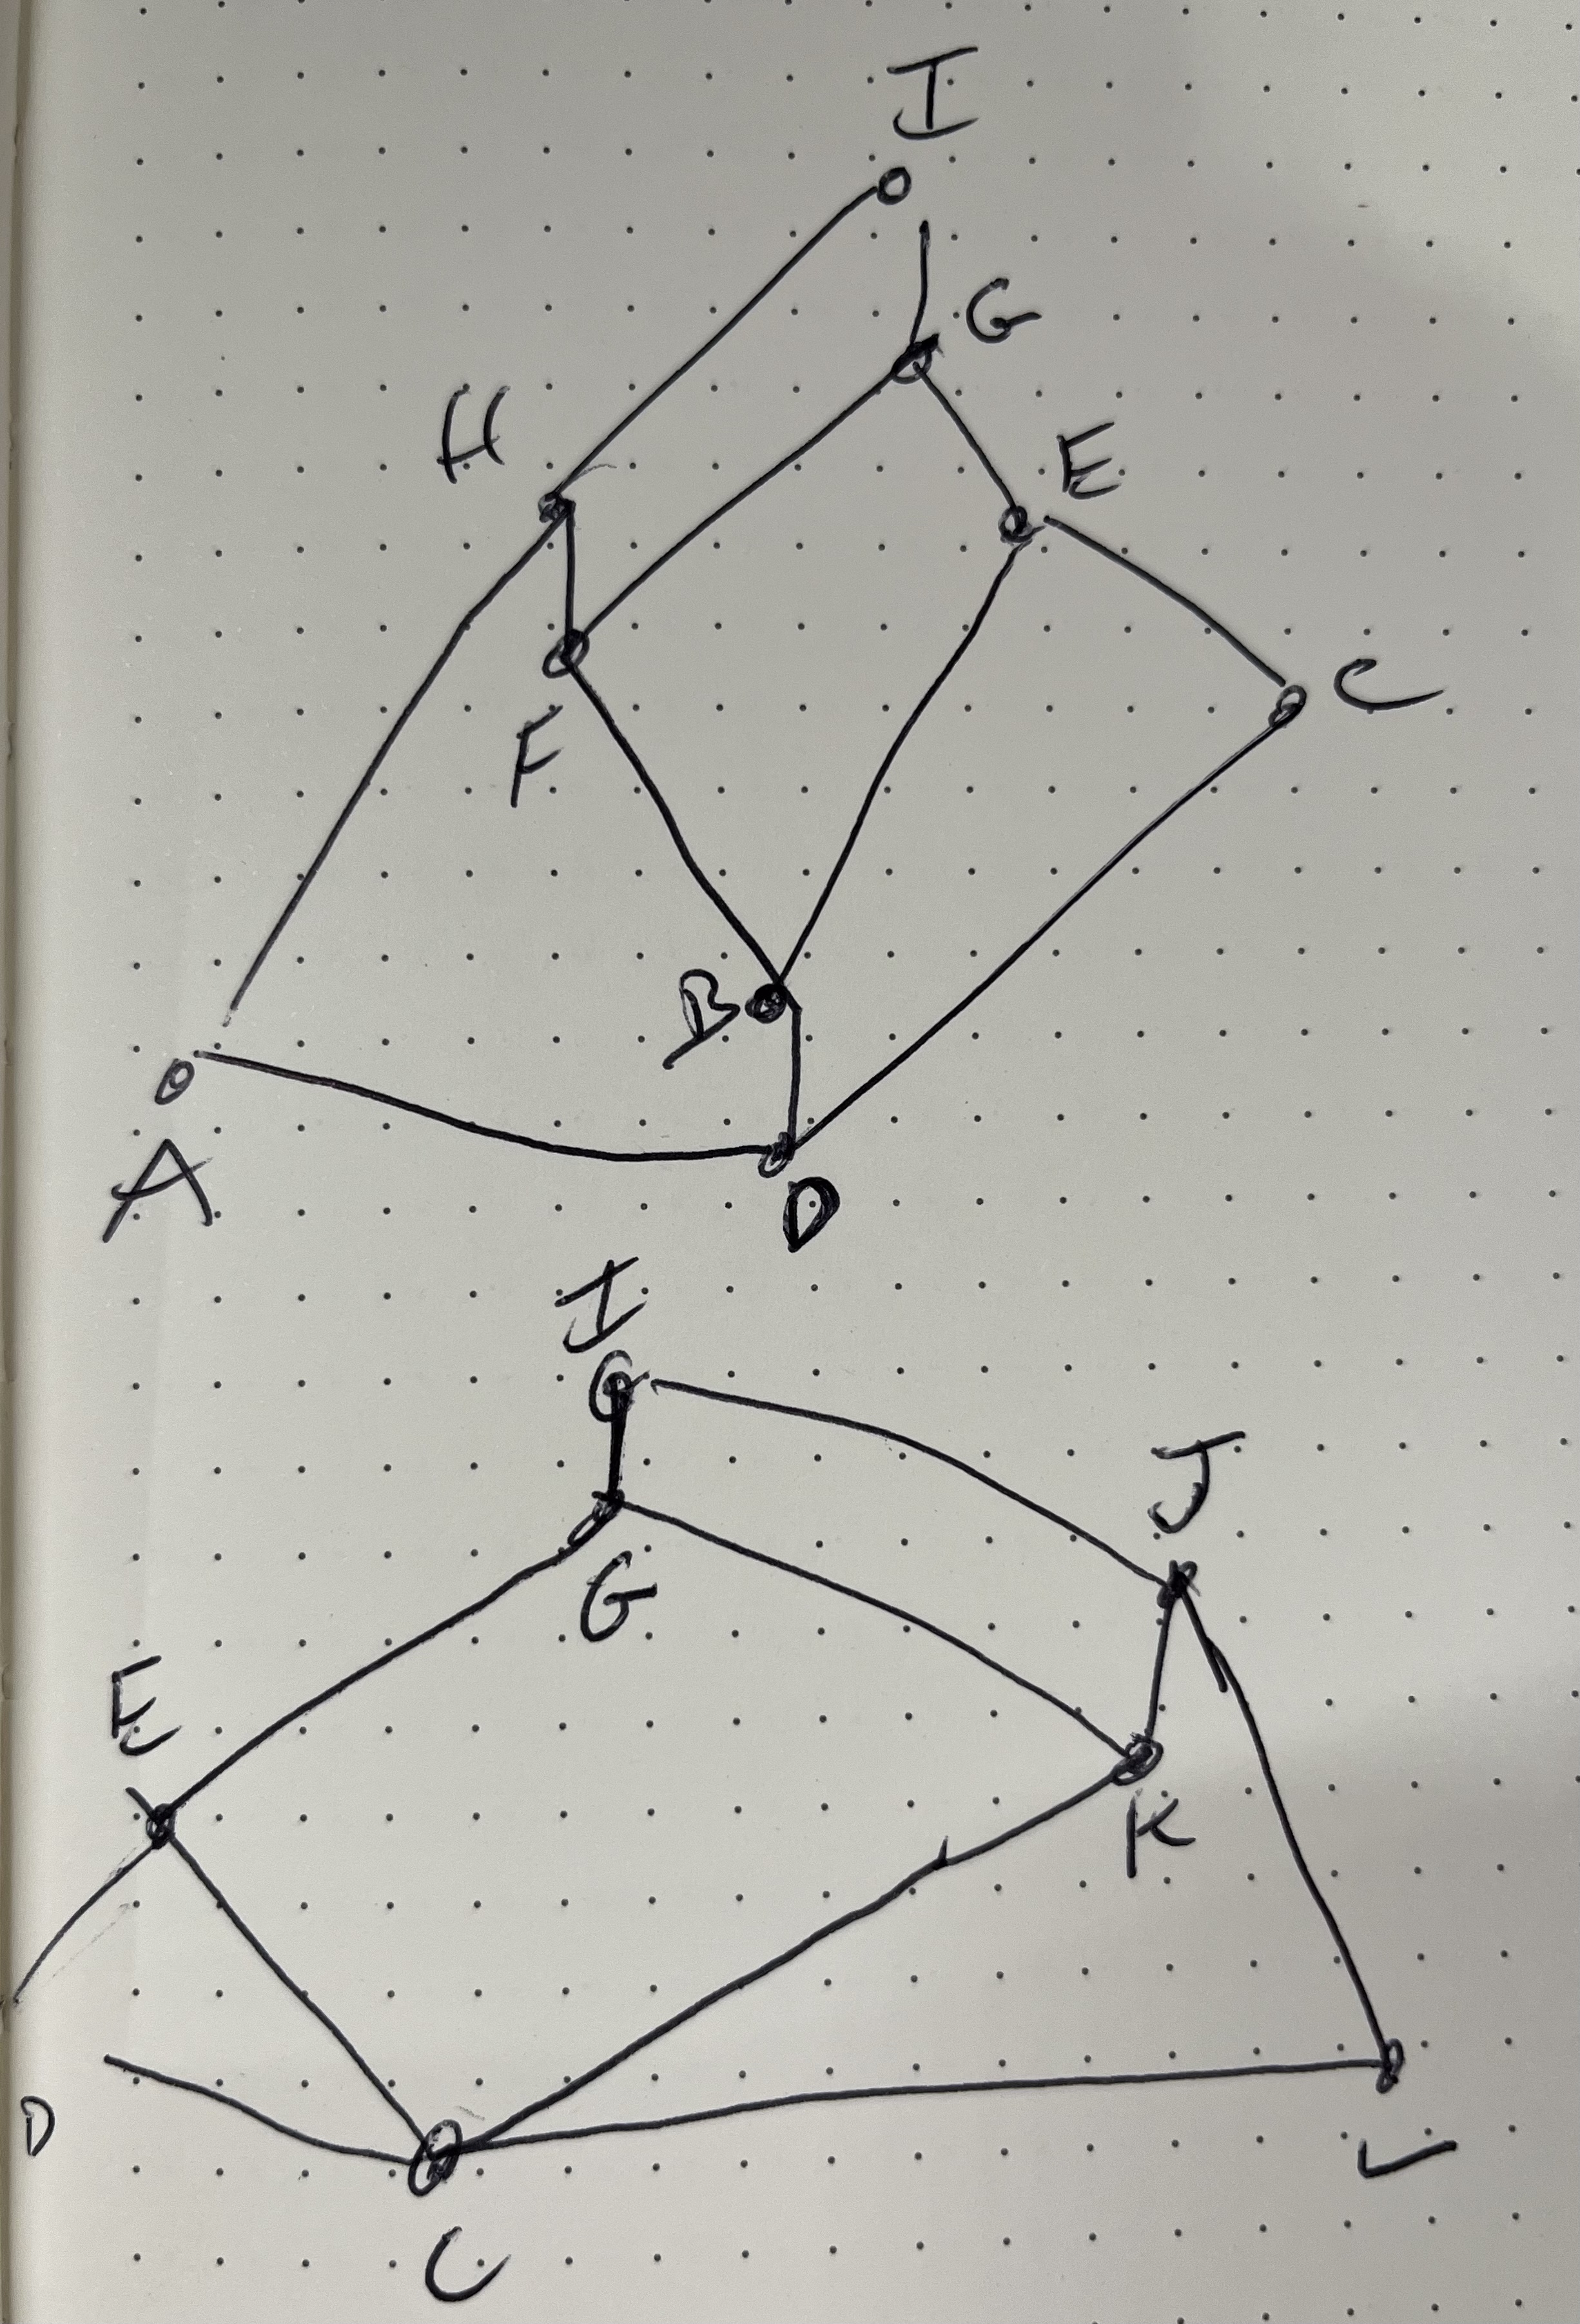 I
G
H
E
C
F
B
A
D
I
J
G
E
K
D
L
C